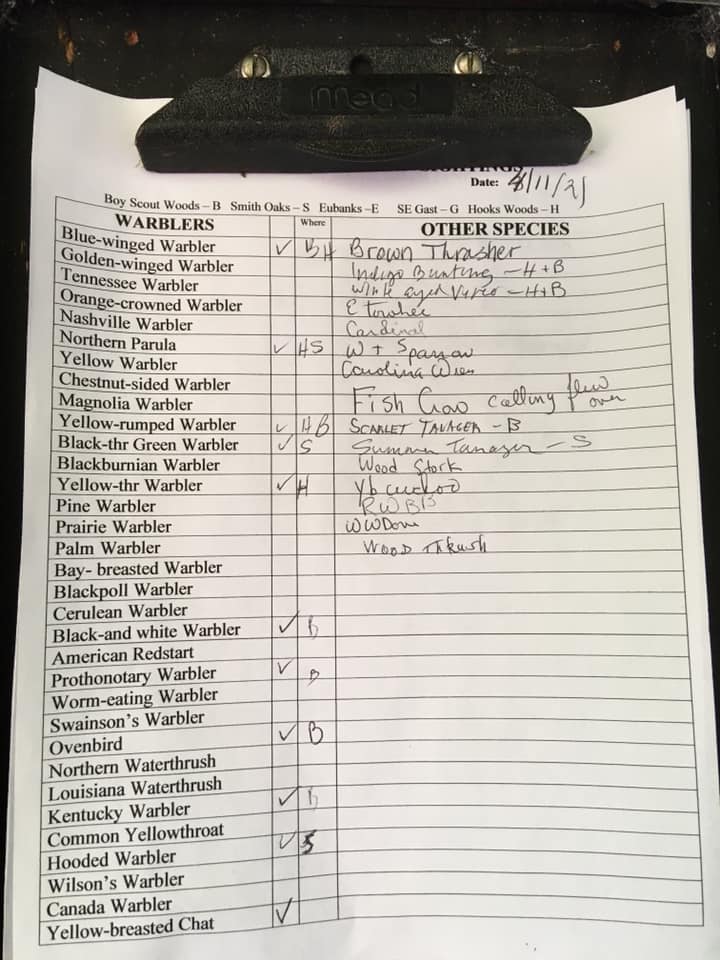 mead
SIGHTINGS
Date: 4/11/21
Boy Scout Woods – B Smith Oaks – S Eubanks –E SE Gast – G Hooks Woods – H
WARBLERS Where OTHER SPECIES
Blue-winged Warbler ✓ BH Brown Thrasher
Golden-winged Warbler Indigo Bunting – H + B
Tennessee Warbler White eyed Vireo – H+B
Orange-crowned Warbler E Towhee
Nashville Warbler Cardinal
Northern Parula ✓ HS W T Sparrow
Yellow Warbler Carolina Wren
Chestnut-sided Warbler
Magnolia Warbler Fish Crow calling flew over
Yellow-rumped Warbler ✓ HB SCARLET TANAGER - B
Black-thr Green Warbler ✓ S Summer Tanager – S
Blackburnian Warbler Wood Stork
Yellow-thr Warbler ✓ H Yb cuckoo
Pine Warbler RWBB
Prairie Warbler WWDove
Palm Warbler Wood Thrush
Bay- breasted Warbler
Blackpoll Warbler
Cerulean Warbler
Black-and white Warbler ✓ B
American Redstart
Prothonotary Warbler ✓ B
Worm-eating Warbler
Swainson's Warbler
Ovenbird ✓ B
Northern Waterthrush
Louisiana Waterthrush
Kentucky Warbler ✓ B
Common Yellowthroat
Hooded Warbler ✓ S
Wilson's Warbler
Canada Warbler
Yellow-breasted Chat ✓